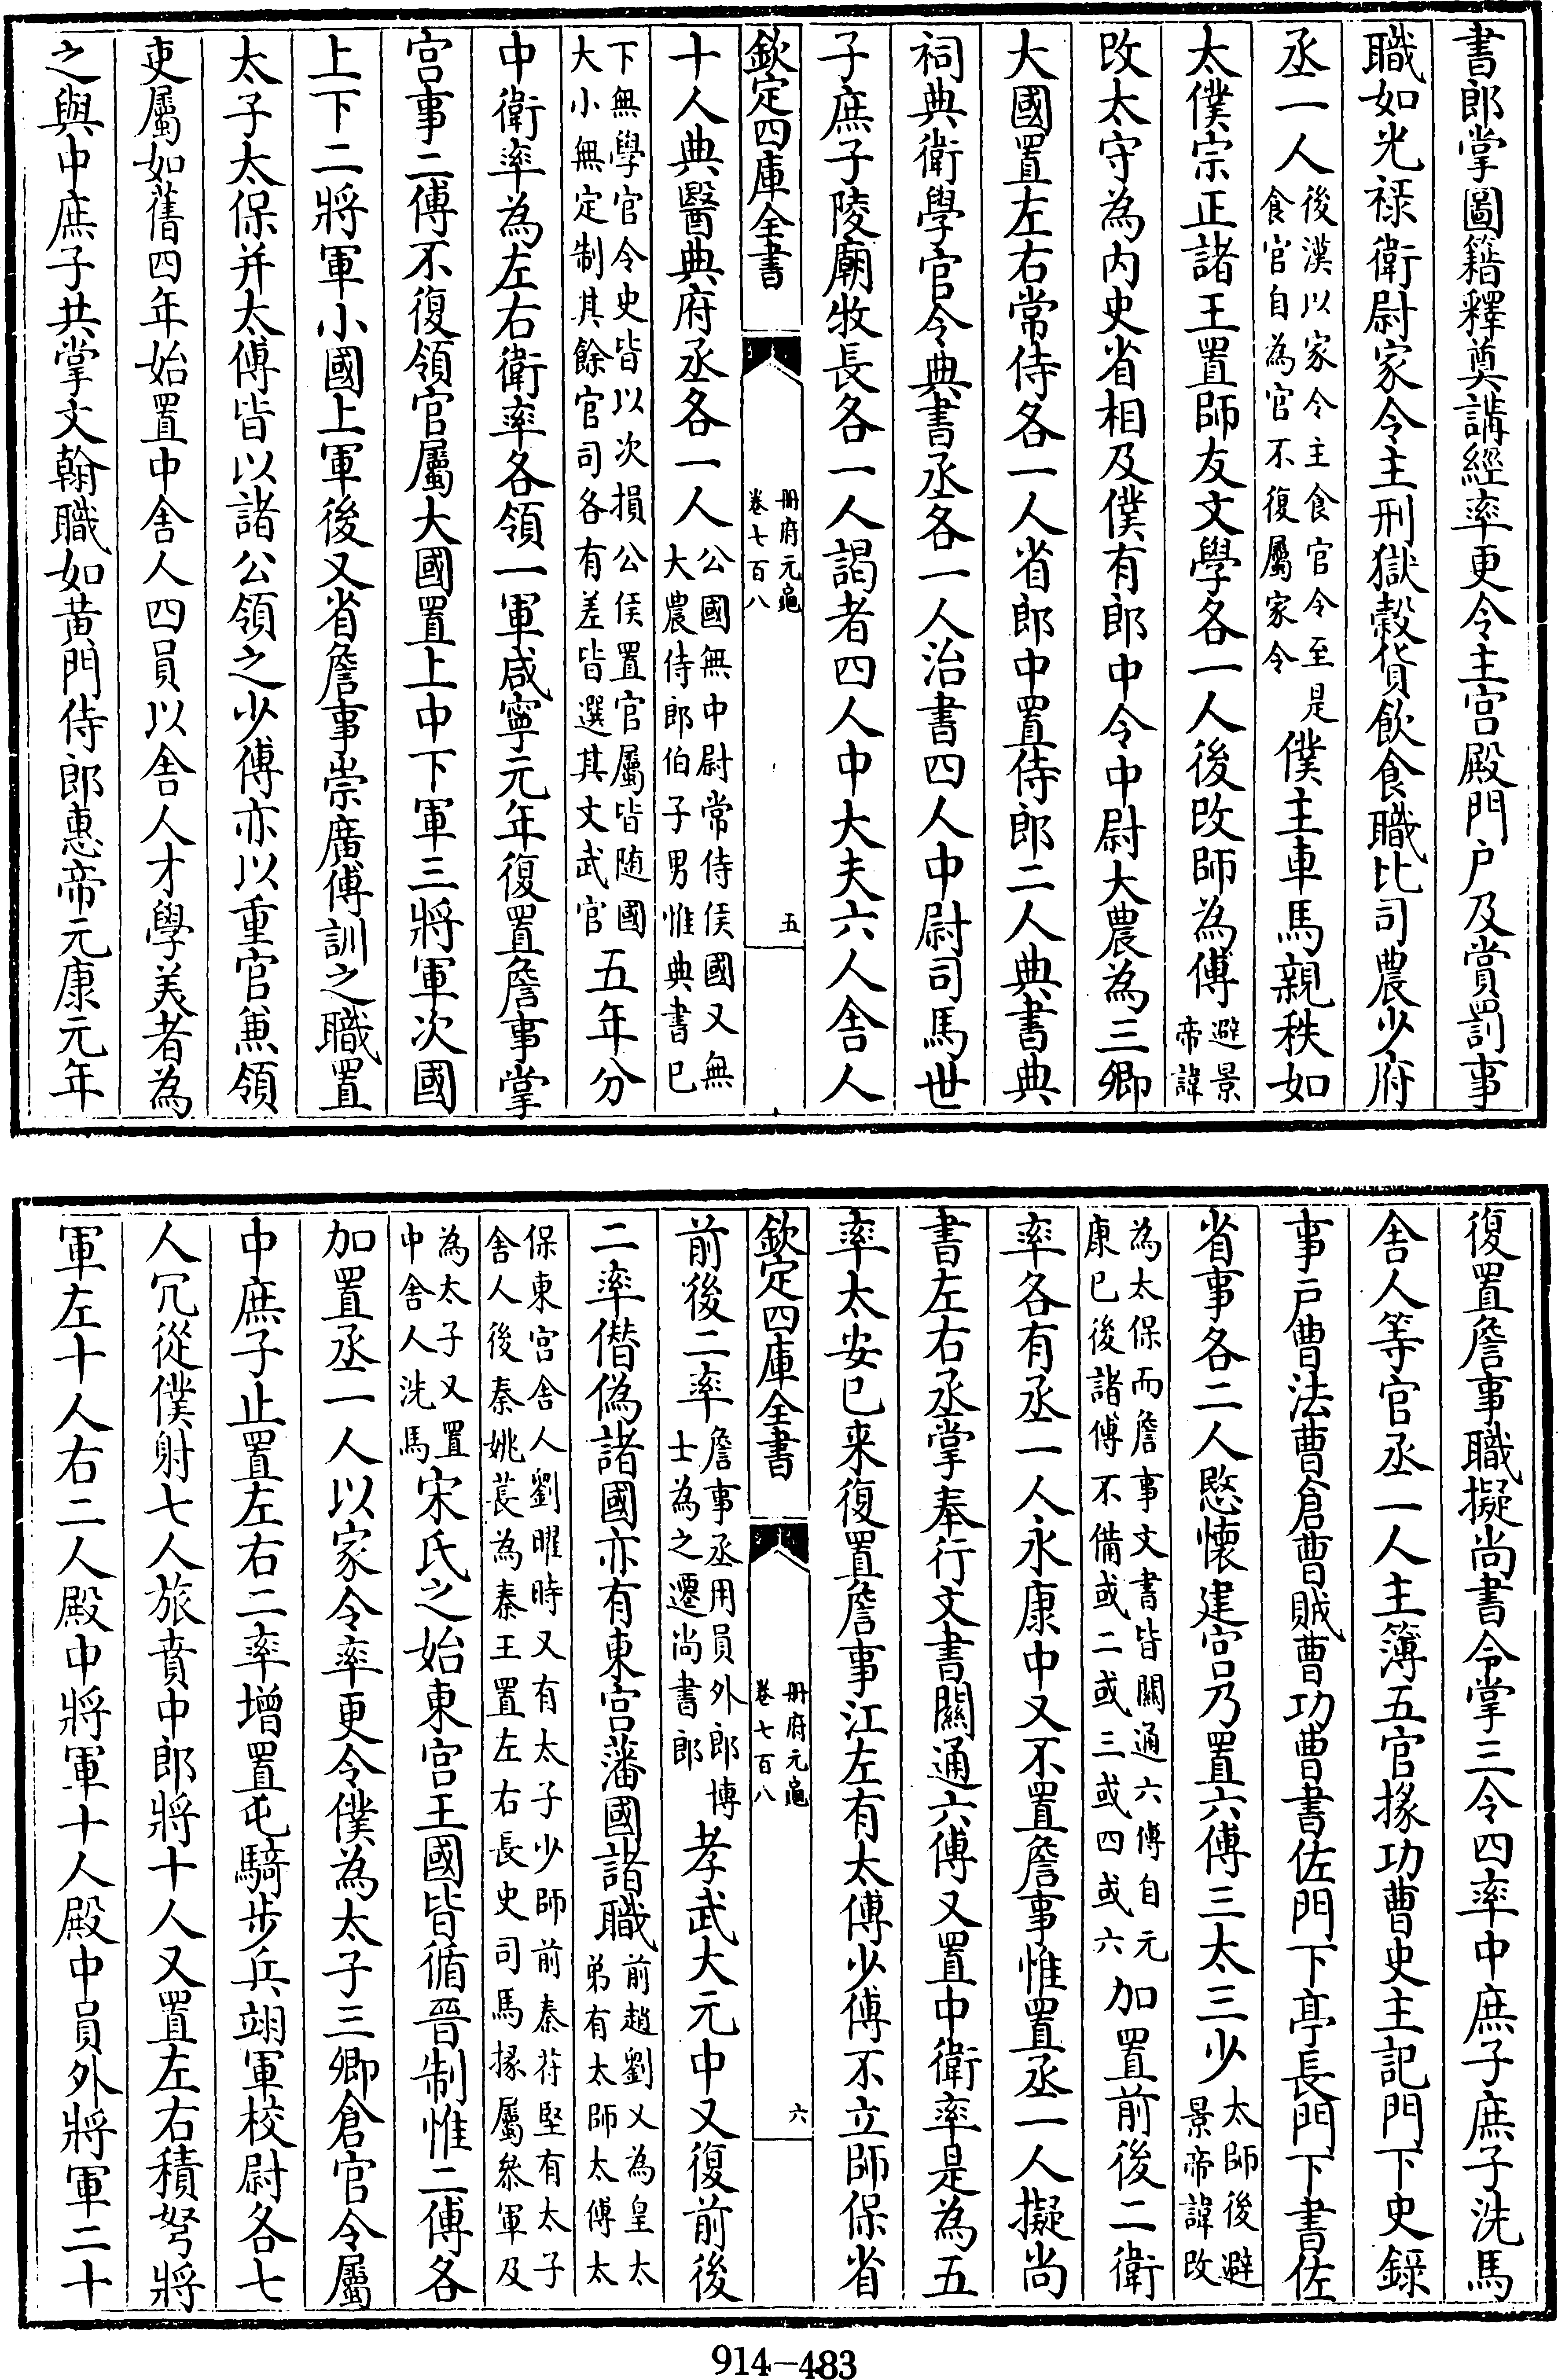 書郎掌圖籍釋奠講經率更令主宫殿門户及賞罰事
職如光禄衛尉家令主刑獄穀貨飲食職比司農少府
丞一人後漢以家令主食官令至是食官自為官不復屬家令僕主車馬親秩如
太僕宗正諸王置師友文學各一人後改師為傅避景帝諱
改太守為内史省相及僕有郎中令中尉大農為三卿
大國置左右常侍各一人省郎中置侍郎二人典書典
祠典衛學官令典書丞各一人治書四人中尉司馬世
子庶子陵廟牧長各一人謁者四人中大夫六人舍人
欽定四庫全書 冊府元龜卷七百八 五
十人典醫典府丞各一人公國無中尉常侍侯國又無大農侍郎伯子男惟典書已
下無學官令史皆以次損公侯置官屬皆随國大小無定制其餘官司各有差皆選其文武官五年分
中衛率為左右衛率各領一軍咸寧元年復置詹事掌
宫事二傅不復領官屬大國置上中下軍三將軍次國
上下二將軍小國上軍後又省詹事崇廣傅訓之職置
太子太保并太傅皆以諸公領之少傅亦以重官兼領
吏屬如舊四年始置中舍人四員以舍人才學美者為
之與中庶子共掌文翰職如黄門侍郎惠帝元康元年
復置詹事職擬尚書令掌三令四率中庶子庶子洗馬
舍人等官丞一人主簿五官掾功曹史主記門下史錄
事户曹法曹倉曹賊曹功曹書佐門下亭長門下書佐
省事各二人愍懷建宫乃置六傅三太三少太師後避景帝諱改
為太保而詹事文書皆關通六傅自元康已後諸傅不備或二或三或四或六加置前後二衛
率各有丞一人永康中又不置詹事惟置丞一人擬尚
書左右丞掌奉行文書關通六傅又置中衛率是為五
率太安已来復置詹事江左有太傅少傅不立師保省
欽定四庫全書 冊府元龜卷七百八 六
前後二率詹事丞用員外郎博士為之遷尚書郎孝武大元中又復前後
二率僭偽諸國亦有東宫藩國諸職前趙劉乂為皇太弟有太師太傅太
保東宫舍人劉曜時又有太子少師前秦苻堅有太子舍人後秦姚萇為秦王置左右長史司馬掾屬叅軍及
為太子又置中舍人洗馬宋氏之始東宫王國皆循晉制惟二傅各
加置丞一人以家令率更令僕為太子三卿倉官令屬
中庶子止置左右二率增置屯騎步兵翊軍校尉各七
人冗從僕射七人旅賁中郎將十人又置左右積弩將
軍左十人右二人殿中將軍十人殿中員外將軍二十
914-483